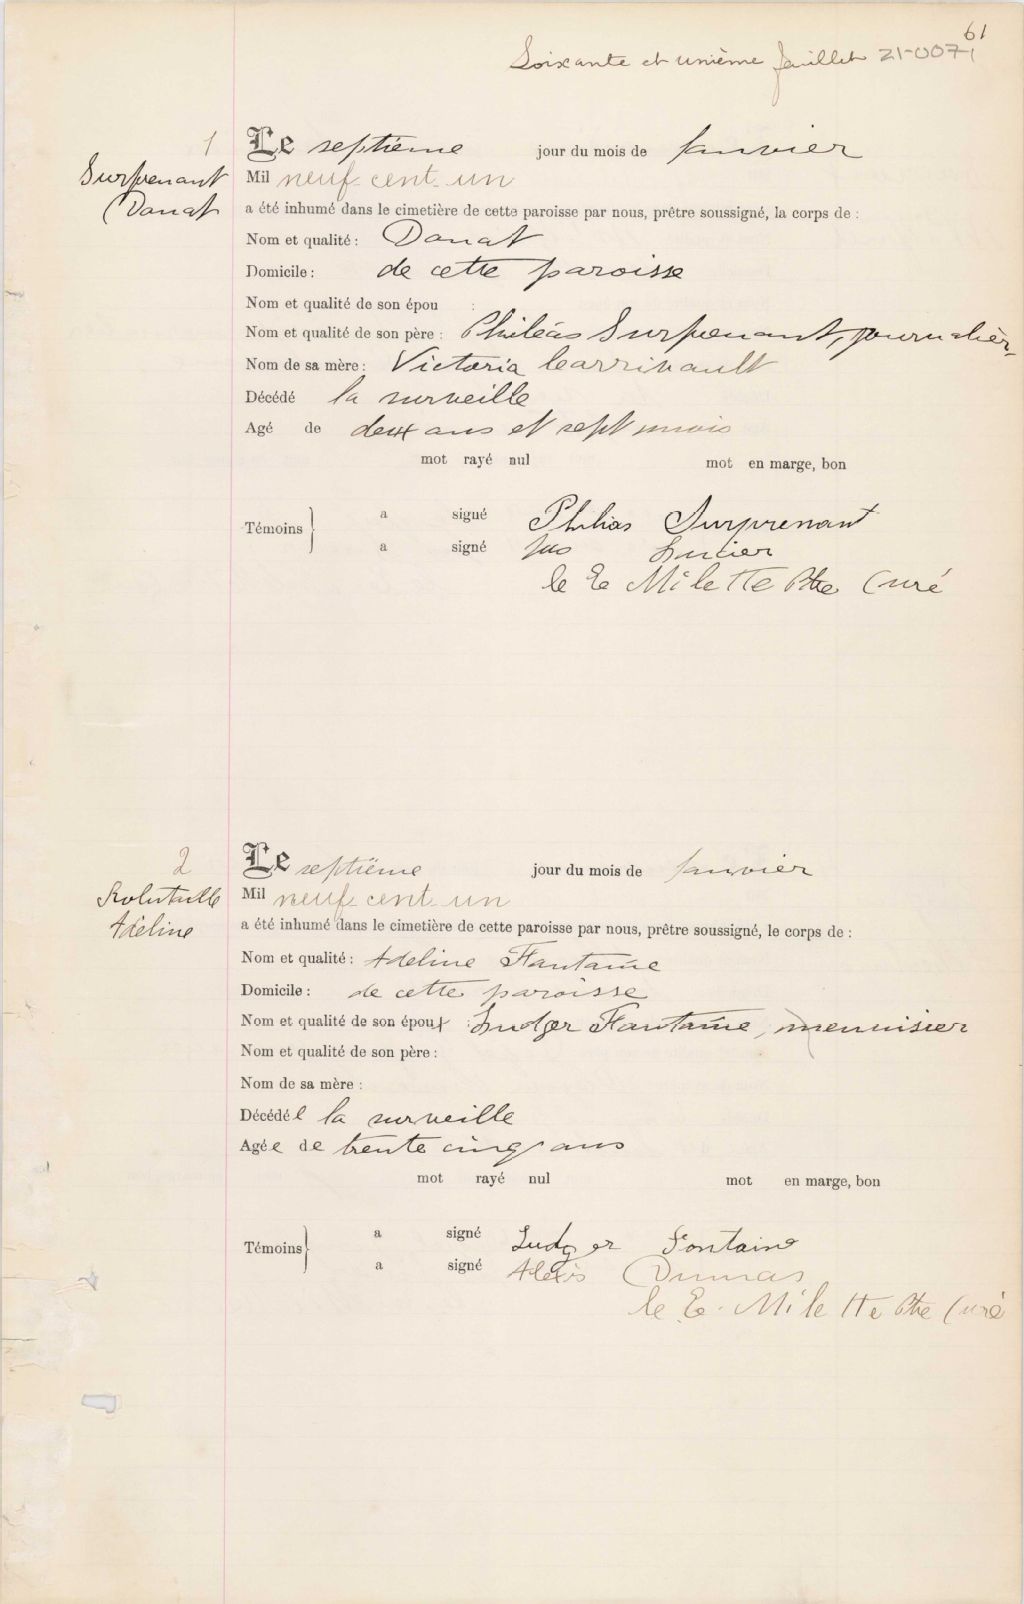 61
Soixante et unième feuillet 21-0071
1
Le septième jour du mois de Janvier
Surprenant
Mil neuf cent un
Donat
a été inhumé dans le cimetière de cette paroisse par nous, prêtre soussigné, la corps de :
Nom et qualité : Donat
Domicile : de cette paroisse
Nom et qualité de son épou :
Nom et qualité de son père : Philéas Surprenant, journalier,
Nom de sa mère : Victoria
Décédé la surveille
Agé de deux ans et sept mois
mot rayé nul mot en marge, bon
Témoins } a signé Philias Surprenant
a signé Lucier
C E Milette Ptre Curé
2
Le septième jour du mois de Janvier
Mil neuf cent un
Adéline
a été inhumé dans le cimetière de cette paroisse par nous, prêtre soussigné, le corps de :
Nom et qualité : Adeline Fontaine
Domicile : de cette paroisse
Nom et qualité de son époux : Ludger Fontaine, menuisier
Nom et qualité de son père :
Nom de sa mère :
Décédée la surveille
Agée de trente cinq ans
mot rayé nul mot en marge, bon
Témoins } a signé Ludger Fontaine
a signé Alexis Dumas
C E. Milette Ptre Curé